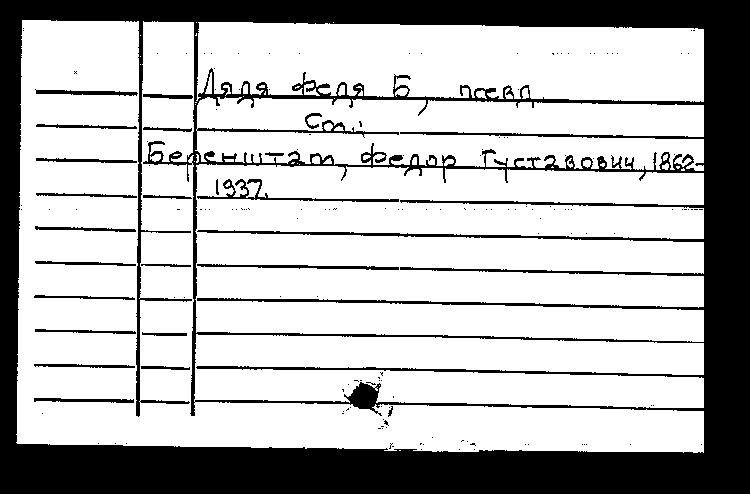 Дядя Федя Б, псевд.
См.:
Беренштам, Федор Густавович, 1862-
1937.